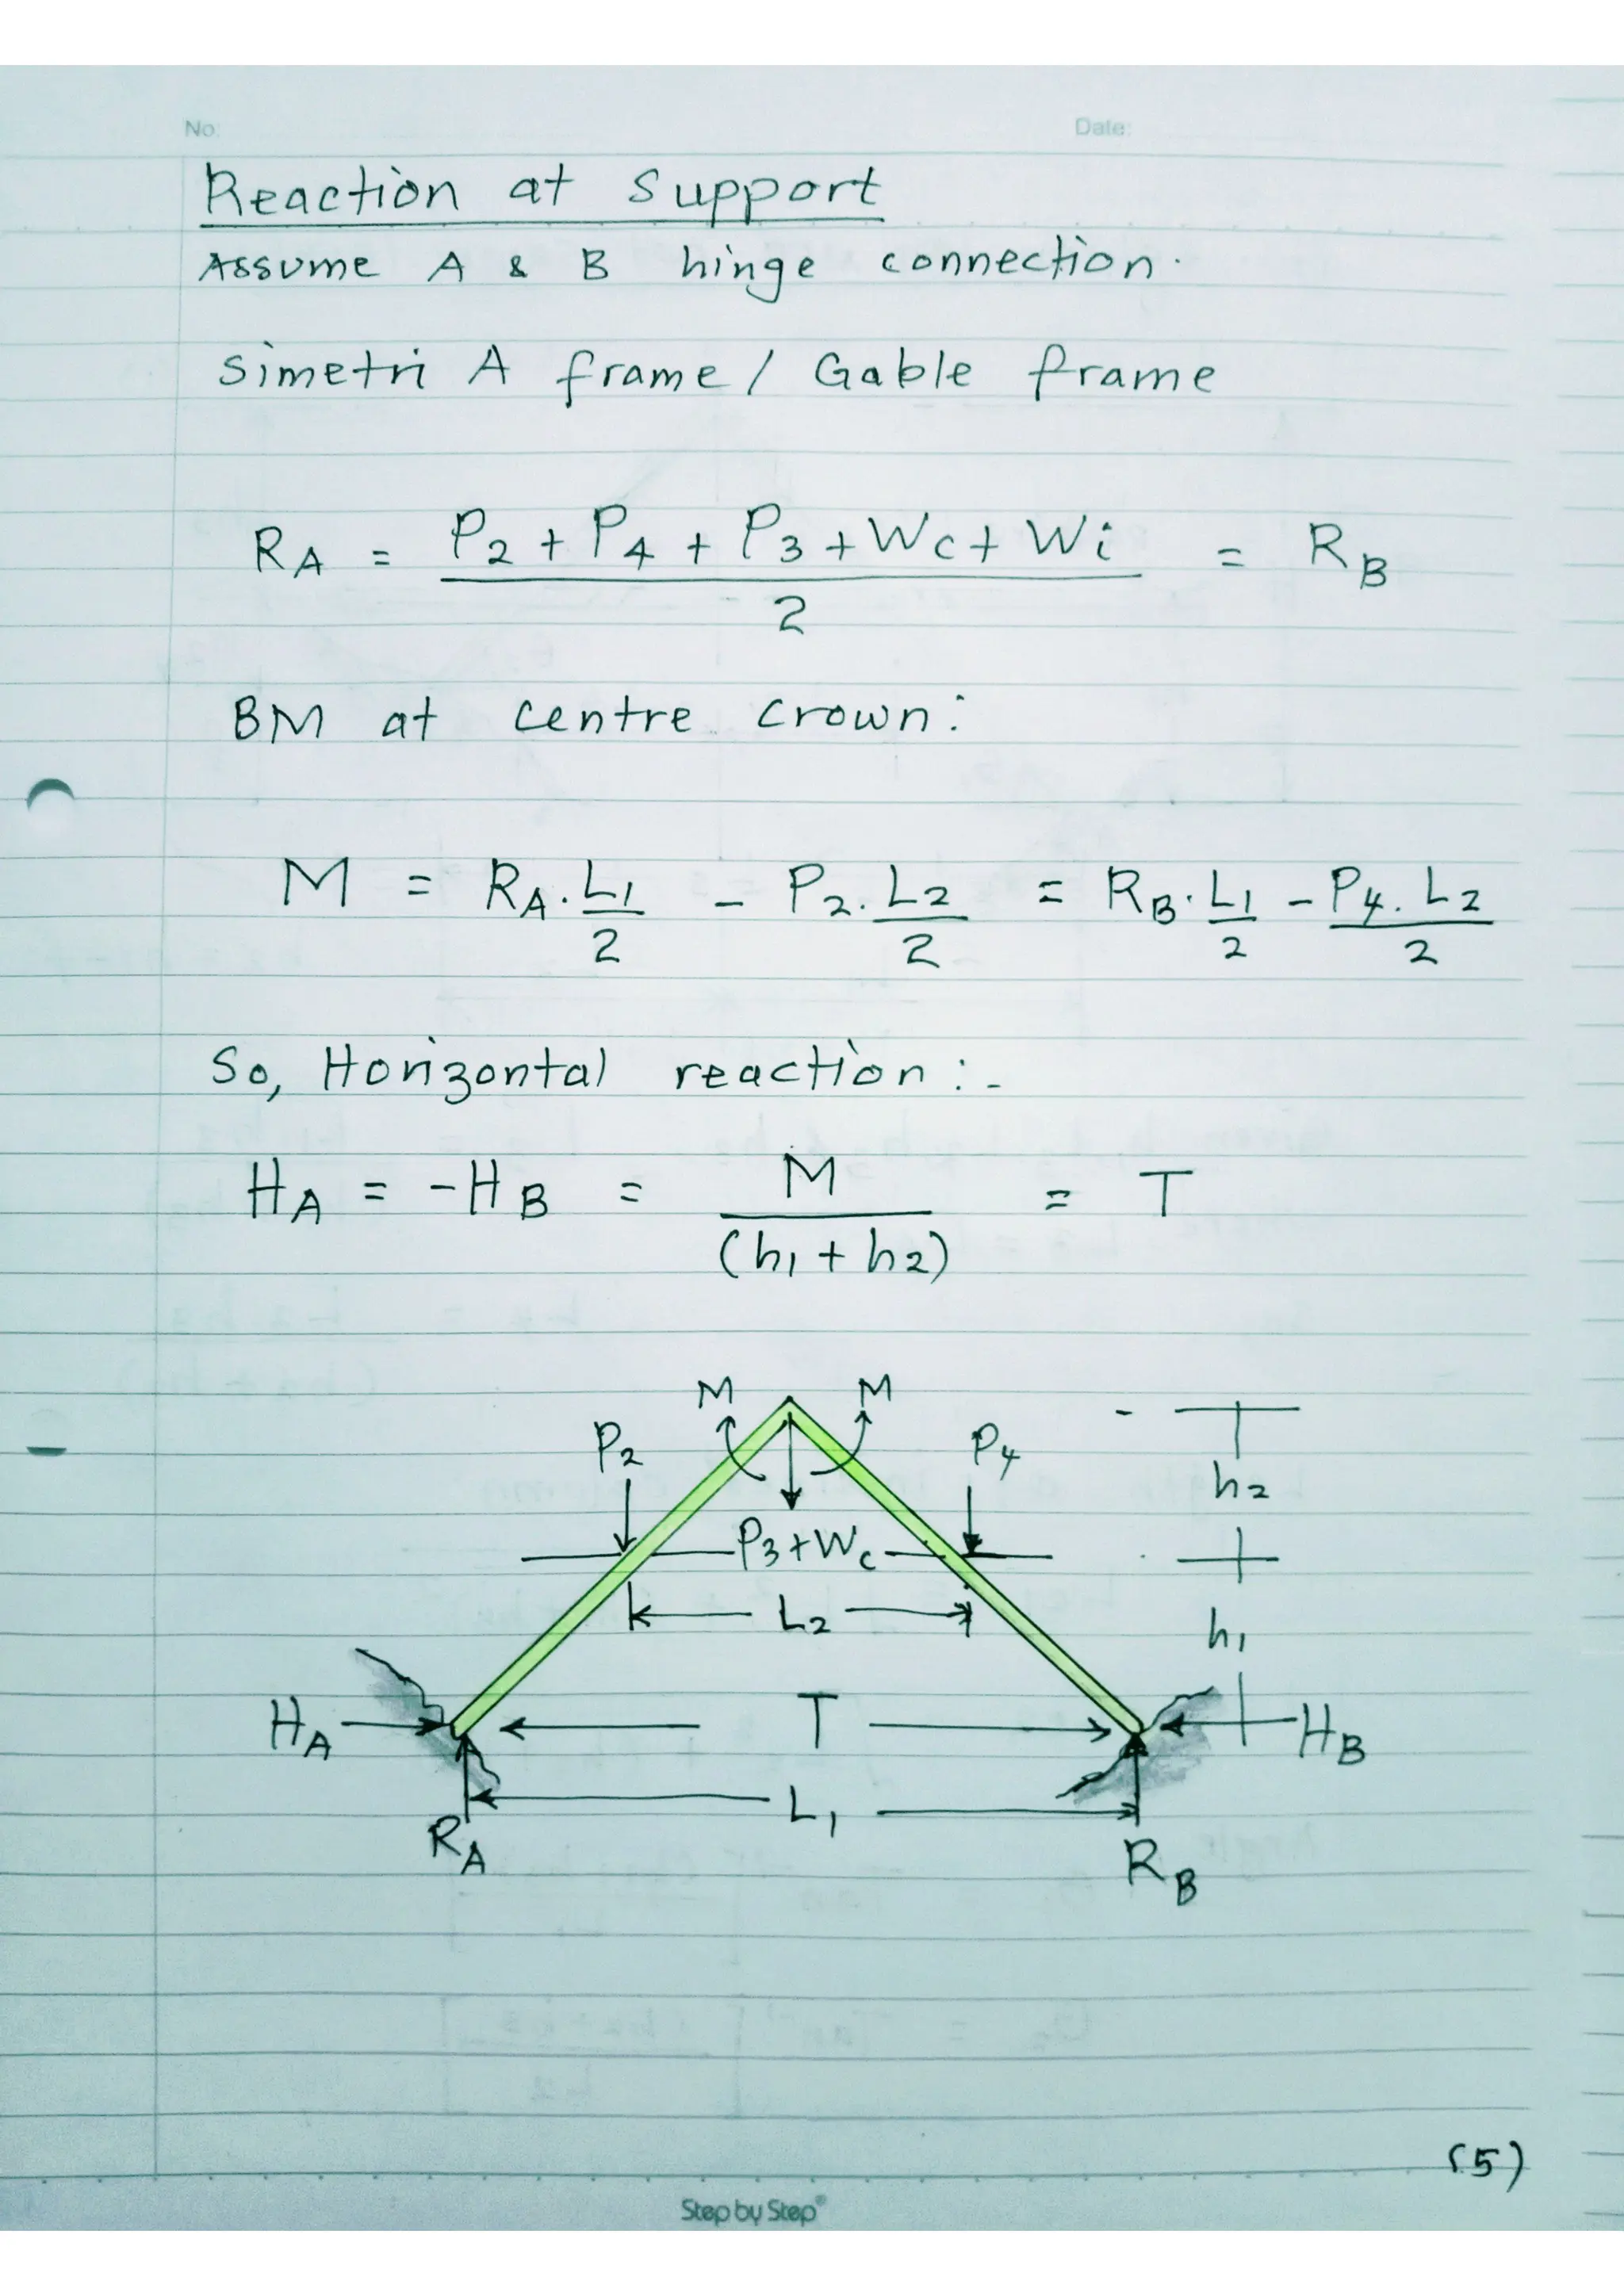 No:
Date:
Reaction at support
Assume A & B hinge connection.
Simetri A frame / Gable frame
RA = P2 + P4 + P3 + Wc + Wi = RB
2
BM at centre crown:
M = RA. L1 - P2. L2 = RB. L1 - P4. L2
2 2 2 2
So, Horizontal reaction :-
HA = -HB = M = T
(h1 + h2)
M M
P2 P4
h2
P3+Wc
L2
h1
HA T HB
L1
RA RB
(5)
Step by Step®